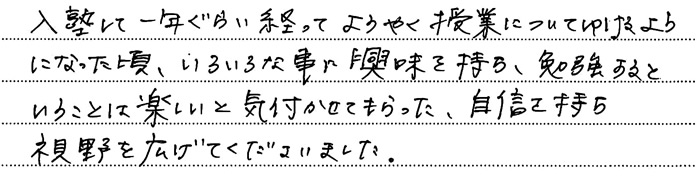 入塾して一年ぐらい経ってようやく授業についてゆけるよう
になった頃、いろいろな事に興味を持ち、勉強すると
いうことは楽しいと気付かせてもらった、自信を持ち
視野を広げてくださいました。